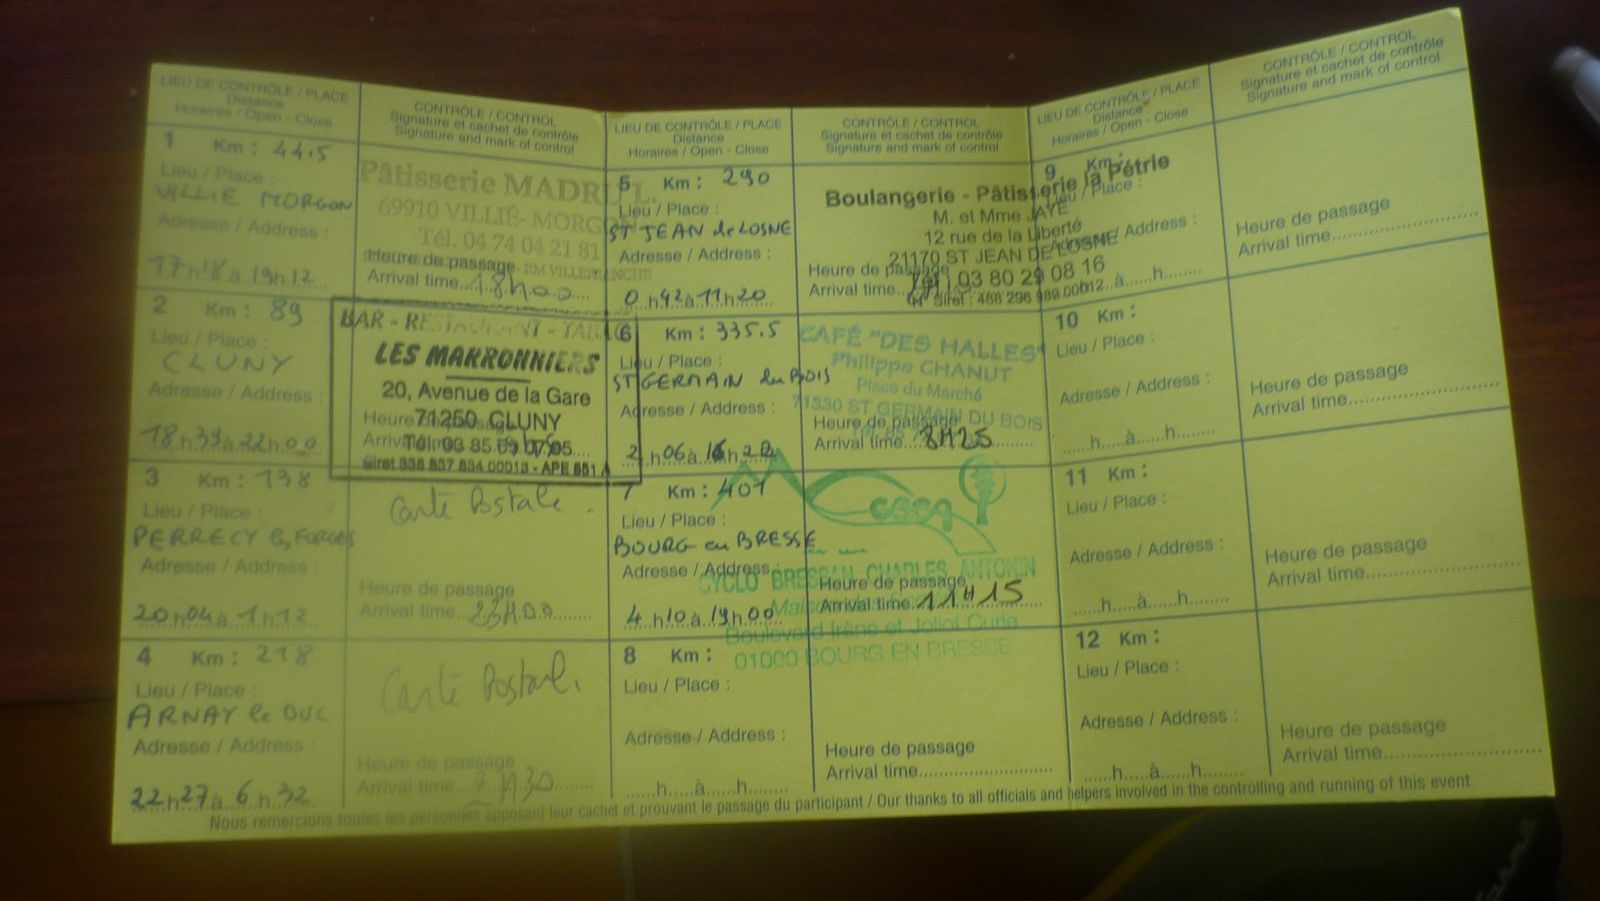 LIEU DE CONTRÔLE / PLACE
Distance
Horaires / Open - Close
CONTRÔLE / CONTROL
Signature et cachet de contrôle
Signature and mark of control
1 Km : 44.5
Lieu / Place :
VILLIE MORGON
Adresse / Address :
17h18 à 19h12
Pâtisserie MADRU L.
69910 VILLIÉ-MORGON
Tél. 04 74 04 21 81
Heure de passage
Arrival time 18h00
2 Km : 89
Lieu / Place :
CLUNY
Adresse / Address :
18h39 à 22h00
BAR - RESTAURANT - TABAC
LES MARRONNIERS
20, Avenue de la Gare
71250 CLUNY
Heure de passage
Tél. 03 85 59 07 95
Arrival time
3 Km : 138
Lieu / Place :
PERRECY les FORGES
Adresse / Address :
20h04 à 1h12
Carte Postale.
Heure de passage
Arrival time 23H00
4 Km : 218
Lieu / Place :
ARNAY le DUC
Adresse / Address :
22h27 à 6h32
Carte Postale.
Heure de passage
Arrival time H30
LIEU DE CONTRÔLE / PLACE
Distance
Horaires / Open - Close
CONTRÔLE / CONTROL
Signature et cachet de contrôle
Signature and mark of control
5 Km : 290
Lieu / Place :
ST JEAN de LOSNE
Adresse / Address :
0h42 à 11h20
Boulangerie - Pâtisserie la Pétrie
M. et Mme JAYE
12 rue de la Liberté
21170 ST JEAN DE LOSNE
Heure de passage
03 80 29 08 16
Arrival time
6 Km : 335.5
Lieu / Place :
ST GERMAIN du BOIS
Adresse / Address :
2h06 à
CAFÉ "DES HALLES"
Philippe CHANUT
Place du Marché
71330 ST GERMAIN DU BOIS
Heure de passage
Arrival time 8H25
7 Km : 401
Lieu / Place :
BOURG en BRESSE
Adresse / Address :
4h10 à 19h00
CBCA
CYCLO BRESSAN CHARLES ANTONIN
Heure de passage
Arrival time 11H15
Boulevard Irène et Joliot Curie
01000 BOURG EN BRESSE
8 Km :
Lieu / Place :
Adresse / Address :
......h.....à.....h........
Heure de passage
Arrival time
LIEU DE CONTRÔLE / PLACE
Distance
Horaires / Open - Close
CONTRÔLE / CONTROL
Signature et cachet de contrôle
Signature and mark of control
9 Km :
Lieu / Place :
Adresse / Address :
à.....h........
Heure de passage
Arrival time
10 Km :
Lieu / Place :
Adresse / Address :
......h.....à.....h........
Heure de passage
Arrival time
11 Km :
Lieu / Place :
Adresse / Address :
......h.....à.....h........
Heure de passage
Arrival time
12 Km :
Lieu / Place :
Adresse / Address :
......h.....à.....h........
Heure de passage
Arrival time
Nous remercions toutes les personnes apposant leur cachet et prouvant le passage du participant / Our thanks to all officials and helpers involved in the controlling and running of this event